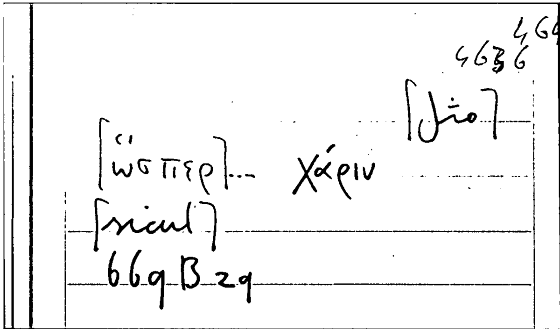 464
4636
[ὥσπερ]... χάριν
[sicut]
669 B 29